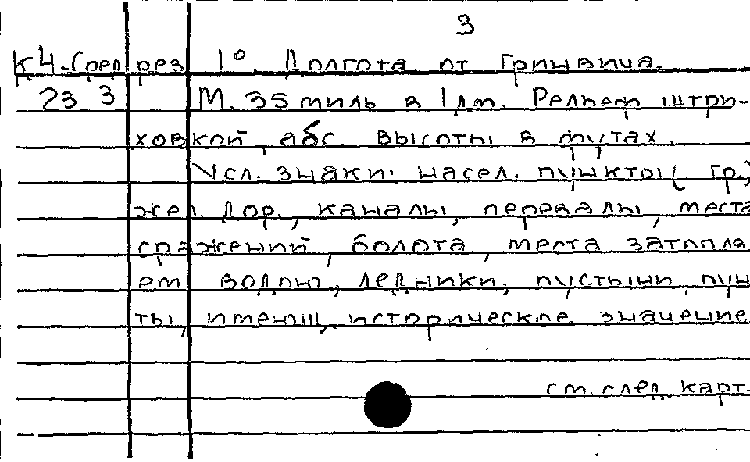 3
К4-Сред рез 1° Долгота от Гринвича.
23 3 М. 35 миль в 1 дм. Рельеф штри-
ховкой, абс. высоты в футах.
Усл. знаки: насел. пункты (гр.,
жел. дор., каналы, перевалы, места
сражений, болота, места затопля
ем. водою, ледники, пустыни, пун
ты, имеющ. историческое значение
см. след. карт-